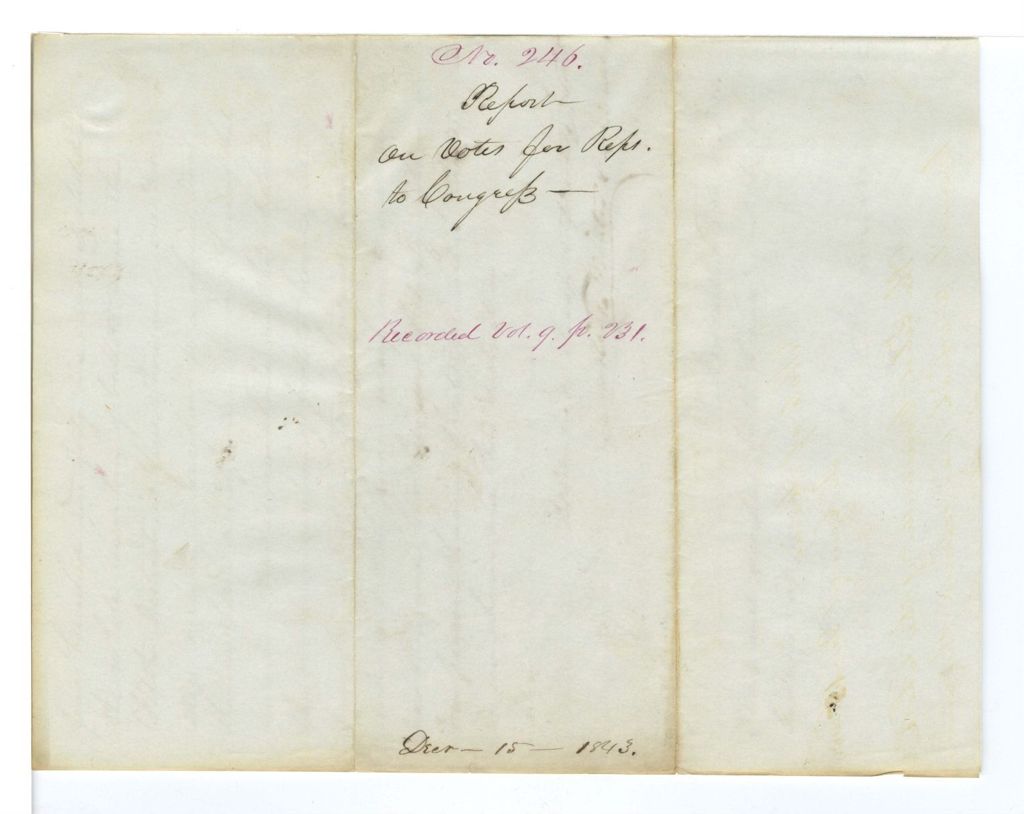 No. 246.
Report
on Votes for Reps.
to Congress —
Recorded Vol. 9. p. 231.
Decr — 15 — 1843.